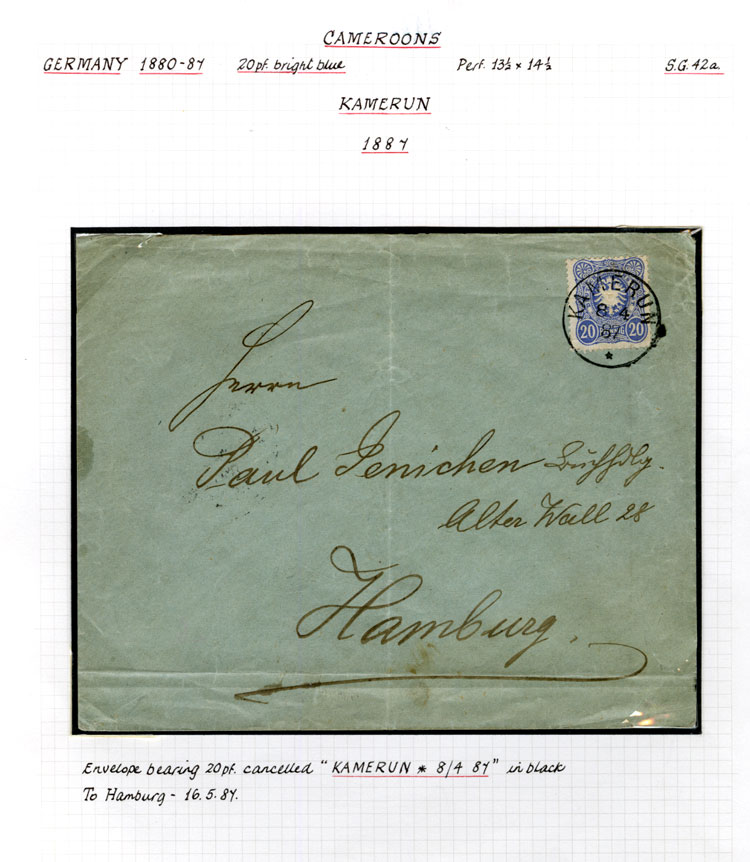 CAMEROONS
GERMANY 1880-87 20pf. bright blue Perf. 13½ × 14½ S.G. 42a.
KAMERUN
1887
KAMERUN
8 4
87
*
20 20
Herrn
Paul Jenichen Buchhdlg.
Alter Wall 28
Hamburg.
Envelope bearing 20pf. cancelled "KAMERUN * 8/4 87" in black
To Hamburg - 16.5.87.